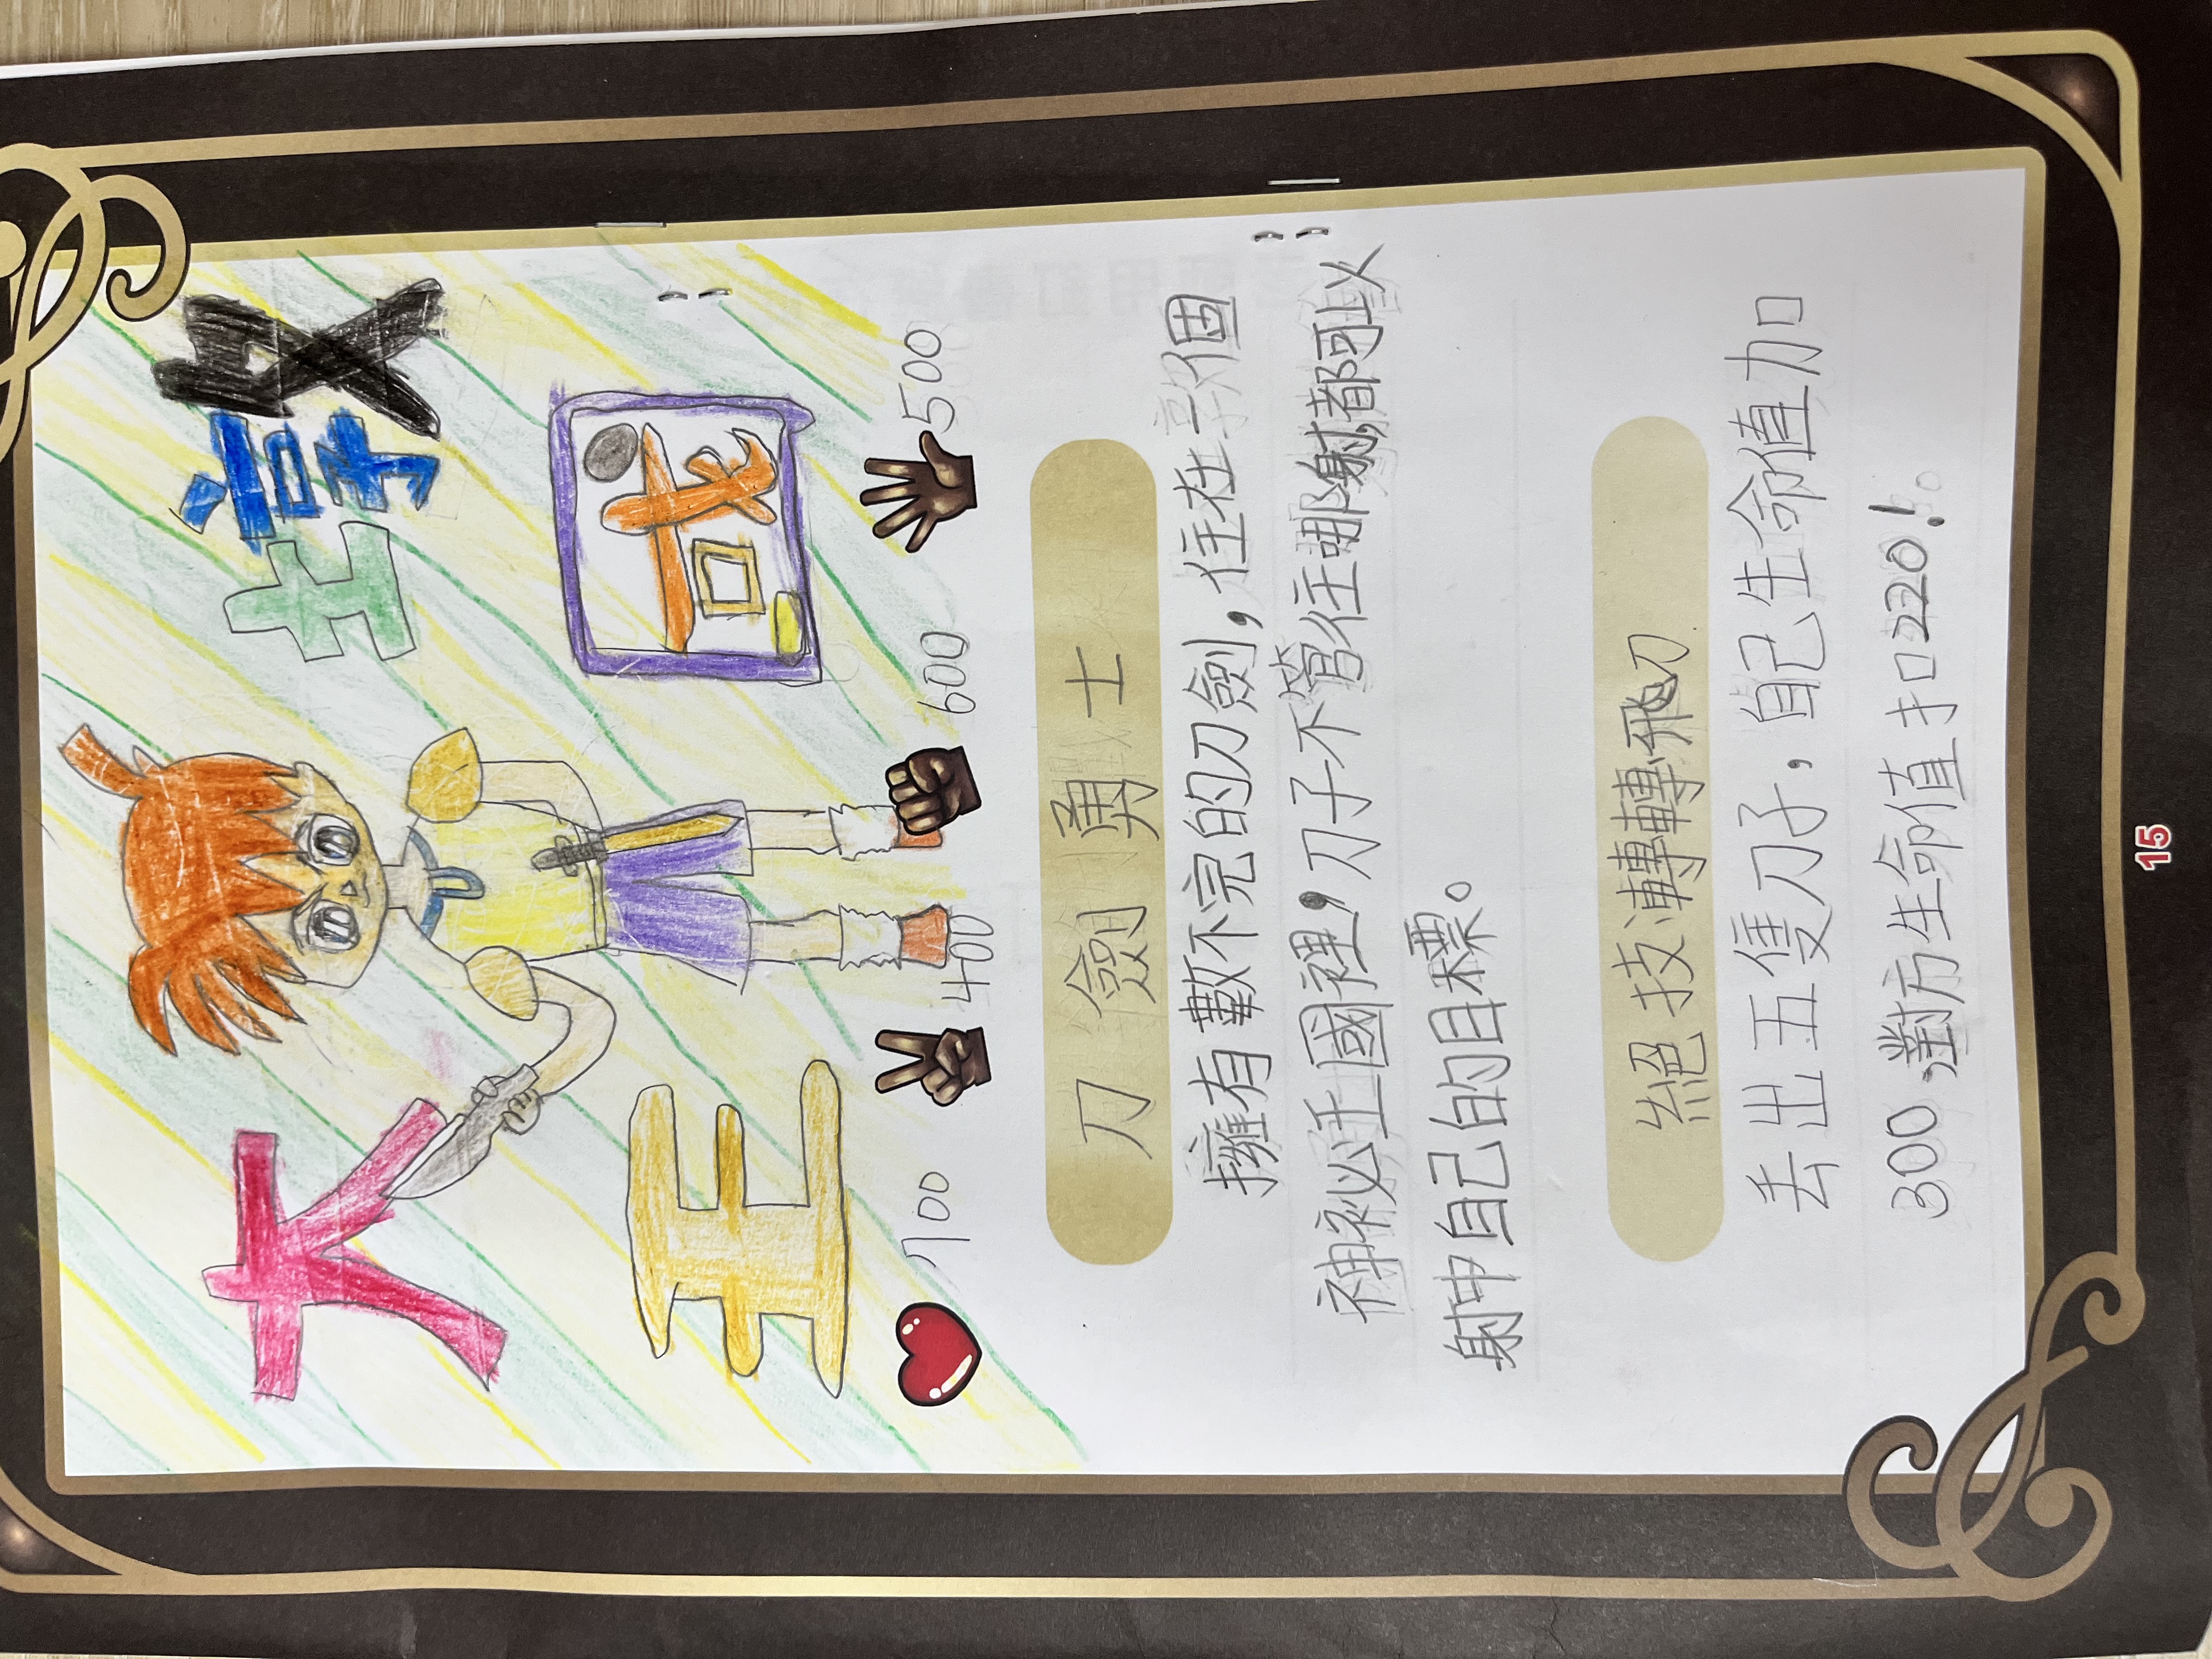 大
王
國
1100 400 600 500
刀劍勇士
擁有數不完的刀劍，住在一個
神祕王國裡，刀子不管往哪射都可以
射中自己的目標。
絕技漙轉飛刀
丟出五隻刀子，自己生命值加
300，對方生命值扣220！。
15